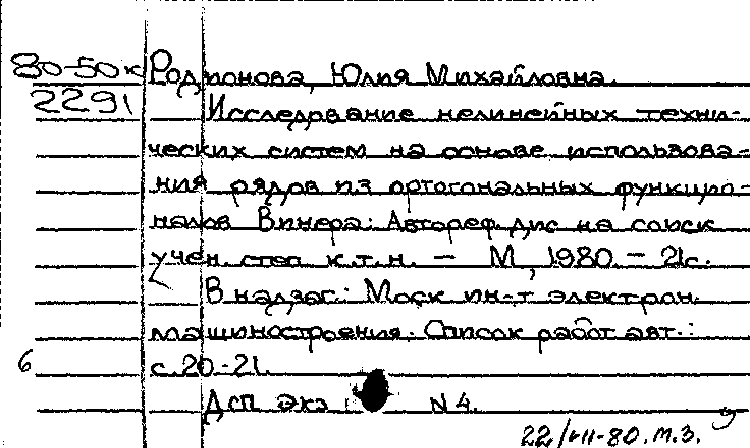 80-50к Родионова, Юлия Михайловна.
2291 Исследование нелинейных техни-
ческих систем на основе использова-
ния рядов из ортогональных функцио-
налов Винера: Автореф. дис на соиск
учен. степ к.т.н. — М, 1980. — 21с.
В надзаг.: Моск ин-т электрон.
машиностроения. Список работ авт.:
6 с. 20-21.
ДСП Экз N 4.
22/VII-80. м.з.